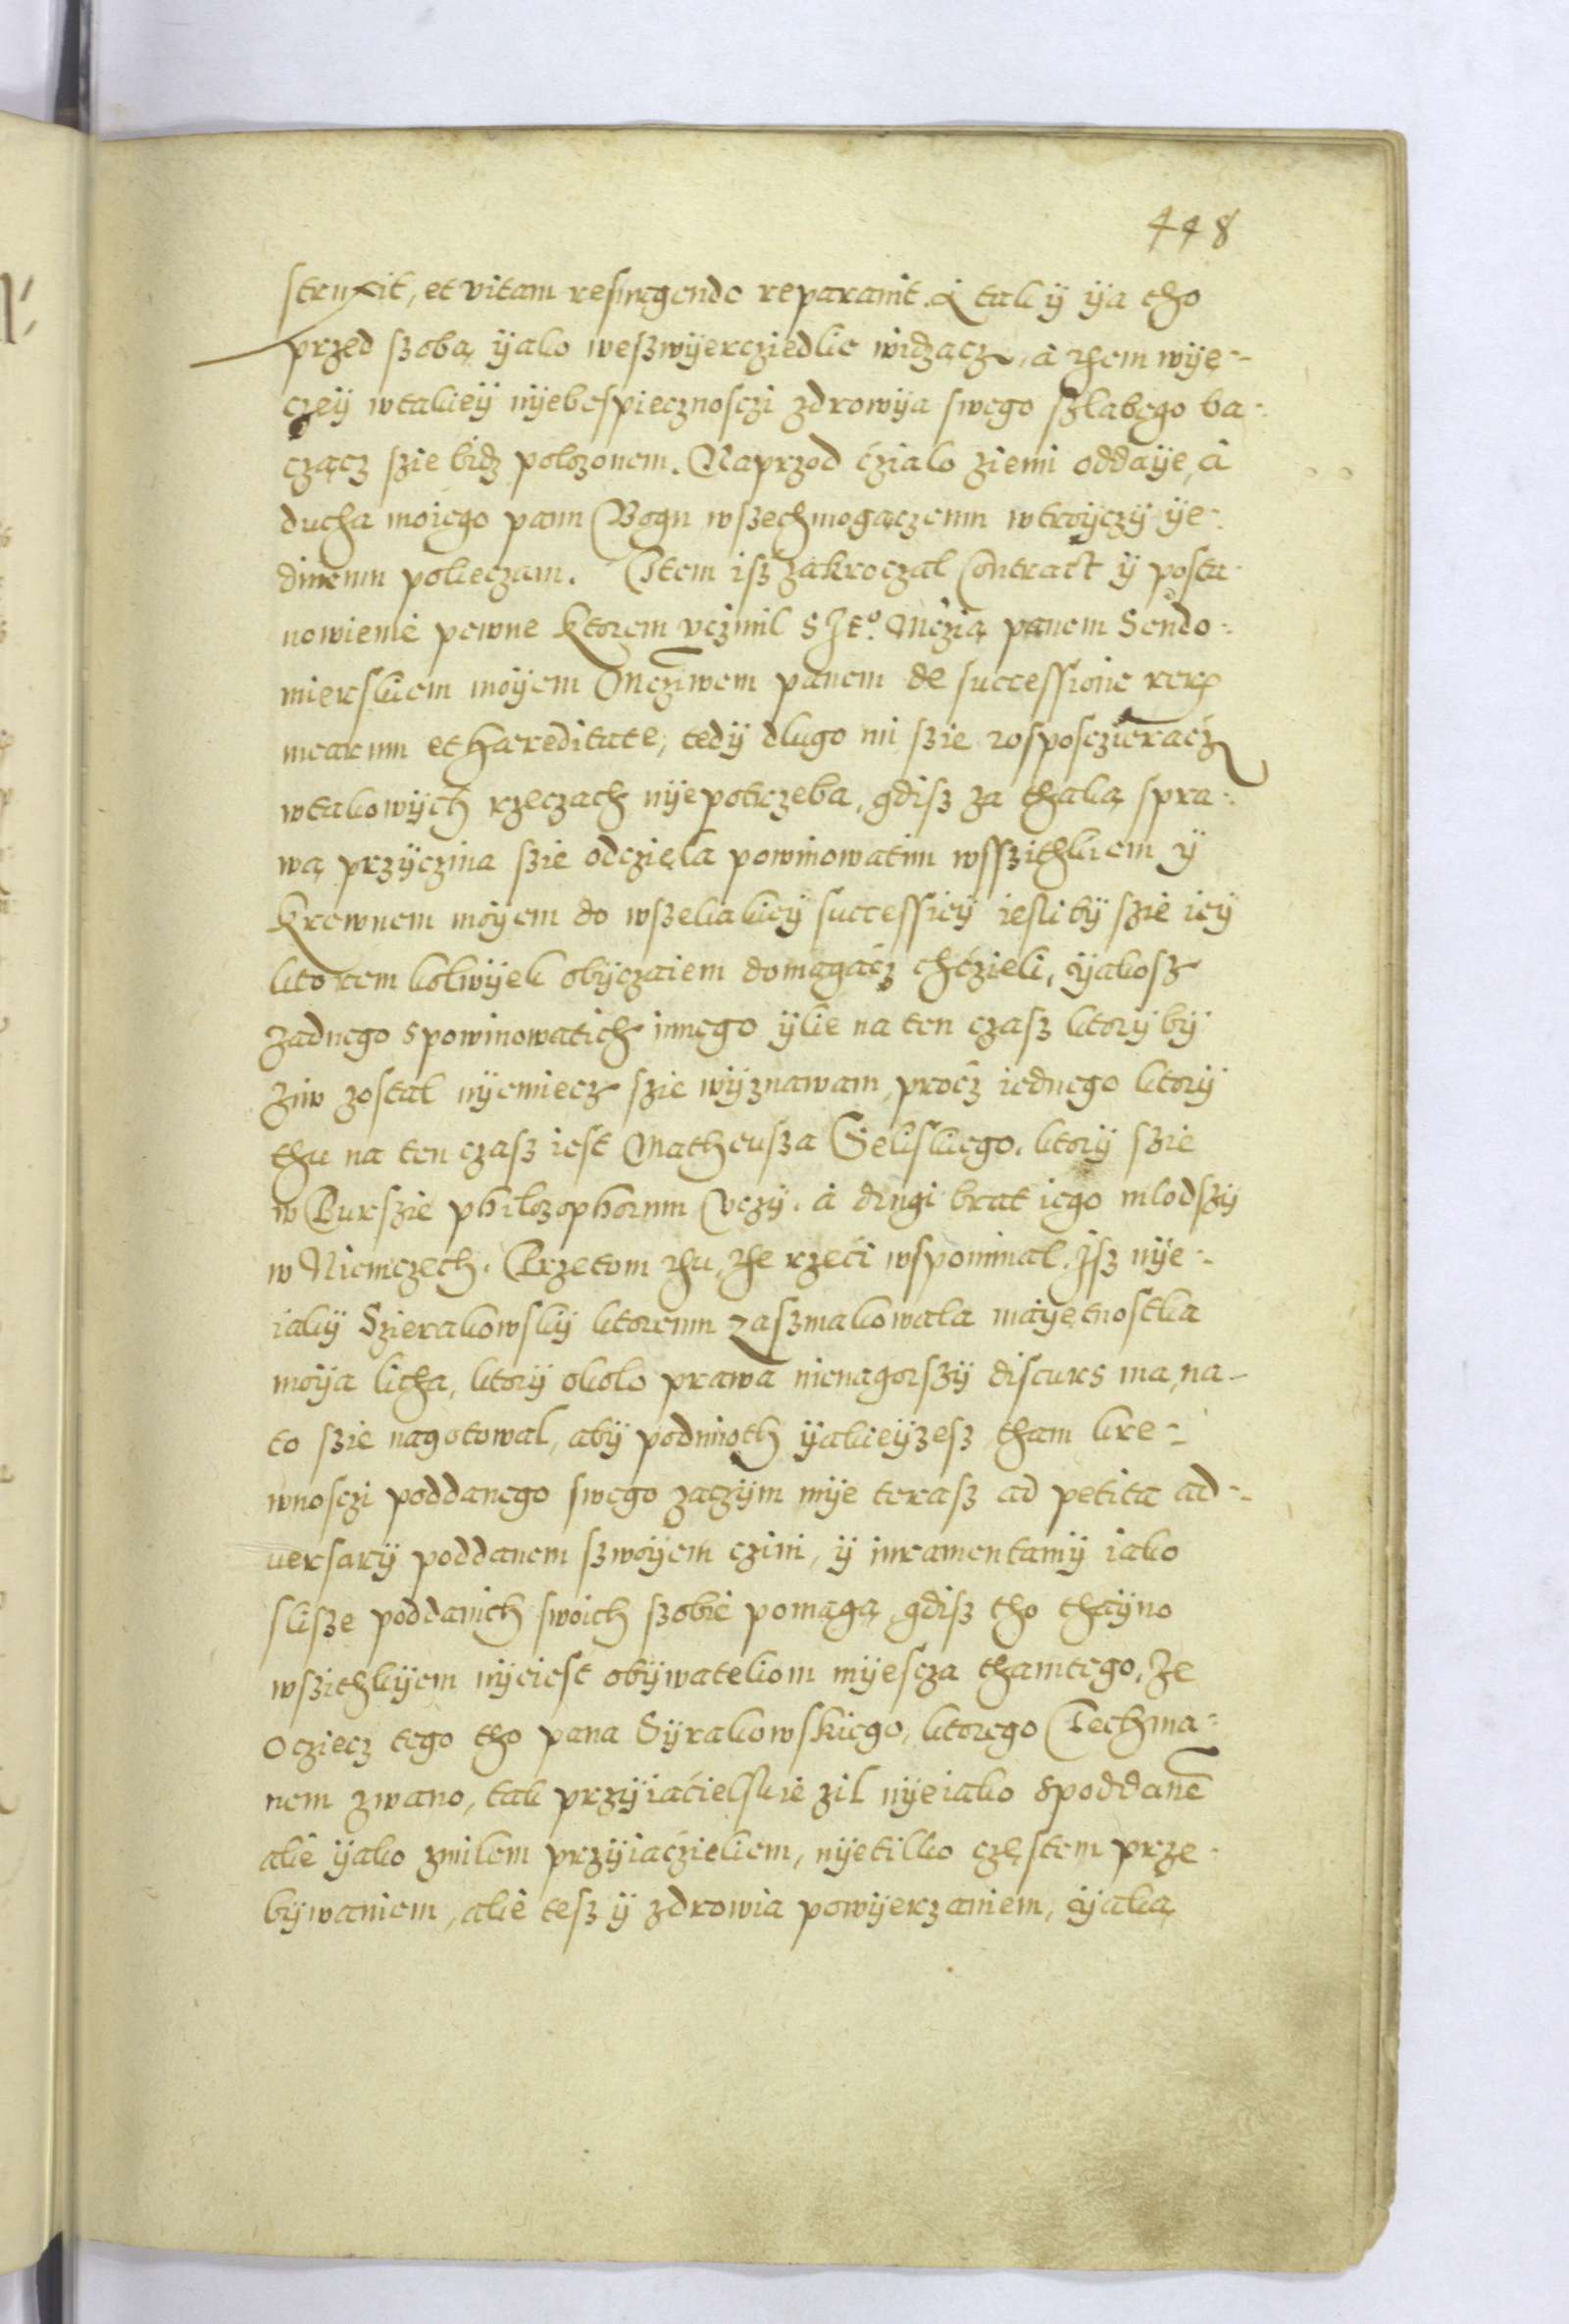 448
struxit, et vitam resurgendo reparauit. A tak ÿ ÿa tho
przed szobą ÿako weszwÿercziedlie widzącz, a them wÿę-
czeÿ wtakieÿ nÿebespiecznosczi zdrowÿa swego szlabego ba-
cząęz szie bidz polozonem. Naprzod cziało ziemi oddaÿę, à
ducha moiego panu Bogu wszechmogączemu wtroÿczÿ ÿe-
dinemu polieczam. Item isz zakroczal Contract ÿ posta-
nowienie pewne ktorem vczinil s Jeº. Mczią panem Sendo-
mierskiem moÿem Mcziwem panem de successione rerum
mearum et haereditate, tedÿ dlugo mi szie rosposczieracz
wtakowÿch rzeczach nÿepotrzeba, gdisz za thaką spra-
wą przÿczina szie odczięla powinowatim wsszithkiem ÿ
krewnem moÿem do wszeliakieÿ successieÿ ieslitÿ szie ieÿ
ktorem kolwÿek obÿczaiem domagacz chczieli, ÿakosz
zadnego spowinowatich innego ÿlie na ten czasz ktorÿ bÿ
ziw zostal nÿemiecz szie wÿznawam, procz iednego ktorÿ
thu na ten czasz iest Matheusza Seliskiego, ktorÿ szie
w Burszie philozophorum vczÿ, à drugi brat iego mlodszÿ
w Niemczech. Przetom thu the rzeci wspominal, Jsz nÿe-
iakÿ Szierakowskÿ ktoremu zaszmakowala maÿętnostka
moÿa licha, ktorÿ okolo prawa nienagorszÿ discurs ma, na-
to szie nagotowal, abÿ podnioth ÿakieÿzesz tham kre-
wnosczi poddanego swego zaczÿm mÿe terasz ad petita ad-
uersarÿ poddanem szwoÿem czini, ÿ iuramentamÿ iako
slisze poddanich swoich szobie pomaga, gdisz tho thaÿno
wszithkÿem nÿeiest obÿwateliom mÿescza thamtego, ze
oczięcz tego tho pana Sÿrakowskiego, ktorego Techma-
nem zwano, tak przÿiacielskie zil nÿeiako spoddanē
alie ÿako zmilem przÿiaczieliem, nÿetilko częstem prze-
bÿwaniem, alie tesz ÿ zdrowia powÿerzaniem, ÿaką